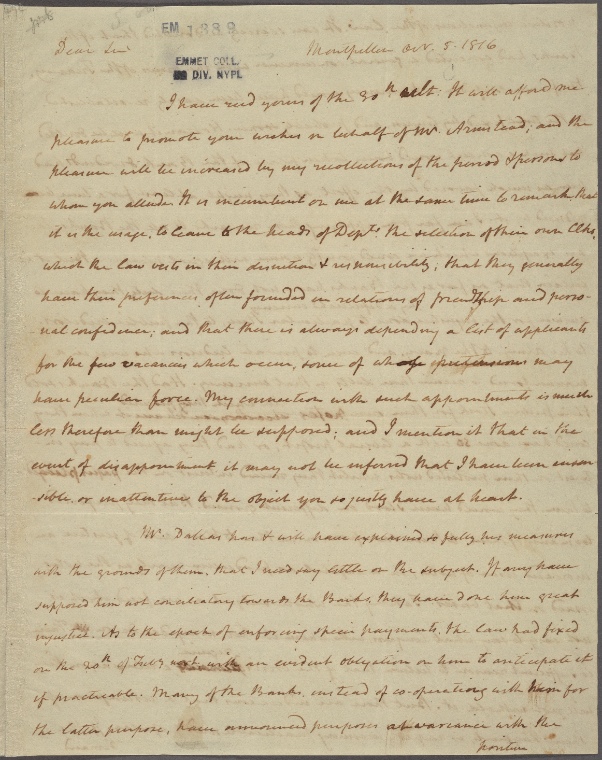 EM 1389
EMMET COLL.
DIV. NYPL
Dear Sir Montpellier Oct. 5. 1816
I have recd yours of the 30th ult: It will afford me
pleasure to promote your wishes in behalf of Mr. Armstead; and the
pleasure will be increased by my recollections of the period & persons to
whom you allude. It is incumbent on me at the same time to remark, that
it is the usage, to leave to the heads of Depts. the selection of their own Clks,
which the law vests in their discretion & responsibility; that they generally
have their preferences often founded in relations of friendship and perso-
nal confidence; and that there is always depending a list of applicants
for the few vacancies which occur, some of whose pretensions may
have peculiar force. My connection with such appointments is much
less therefore than might be supposed; and I mention it that in the
event of disappointment it may not be inferred that I have been insen-
sible or inattentive to the object you so justly have at heart.
Mr. Dallas has & will have explained so fully his measures
with the grounds of them, that I need say little on the subject. If any have
supposed him not conciliatory towards the Banks, they have done him great
injustice. As to the epoch of enforcing specie payments, the law had fixed
on the 20th of Feby with an evident obligation on him to anticipate it
if practicable. Many of the Banks, instead of co-operating with him for
the latter purpose, have announced purposes at variance with the
positive